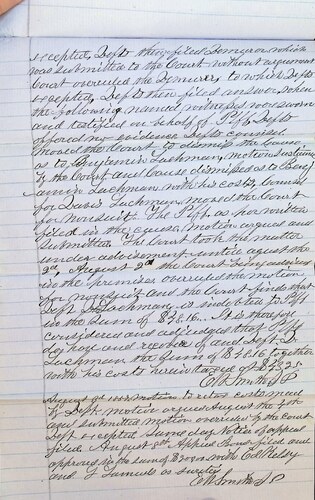 excepted, Defts then filed Demurrer which
was submitted to the Court without argument
Court overruled the Demurrer, to which Defts
excepted, Defts then filed answer, when
the following named witnesses were sworn
and testified in behalf of Plff, Defts
offered no evidence Defts counsel
moved the Court to dismiss the cause
as to Benjamin Lachman, motion sustained
by the Court and cause dismissed as to Benj
amin Lachman with his costs, Counsel
for Davis Lachman, moved the Court
for nonsuit. The Plff. as per written
filed in the cause, motion argued and
submitted. The Court took the matter
under advisement until August the
2nd, August 2nd the Court being advised
in the premises overruled the motion
for nonsuit and the Court finds that
Deft D Lachman is indebted to Plff
in the sum of $48.16. It is therefore
considered and adjudged that Plff
do have and recover of and Deft D.
Lachman the sum of $48.16 together
with his costs herein taxed at
C R Smith J P
August motion to retax costs made
by Deft. motion argued August the
and submitted motion overruled by the court
Deft excepted. Same day Notice of appeal
filed, August Appeal Bond filed and
approved in the sum of with
and Samuels as sureties
C R Smith J P